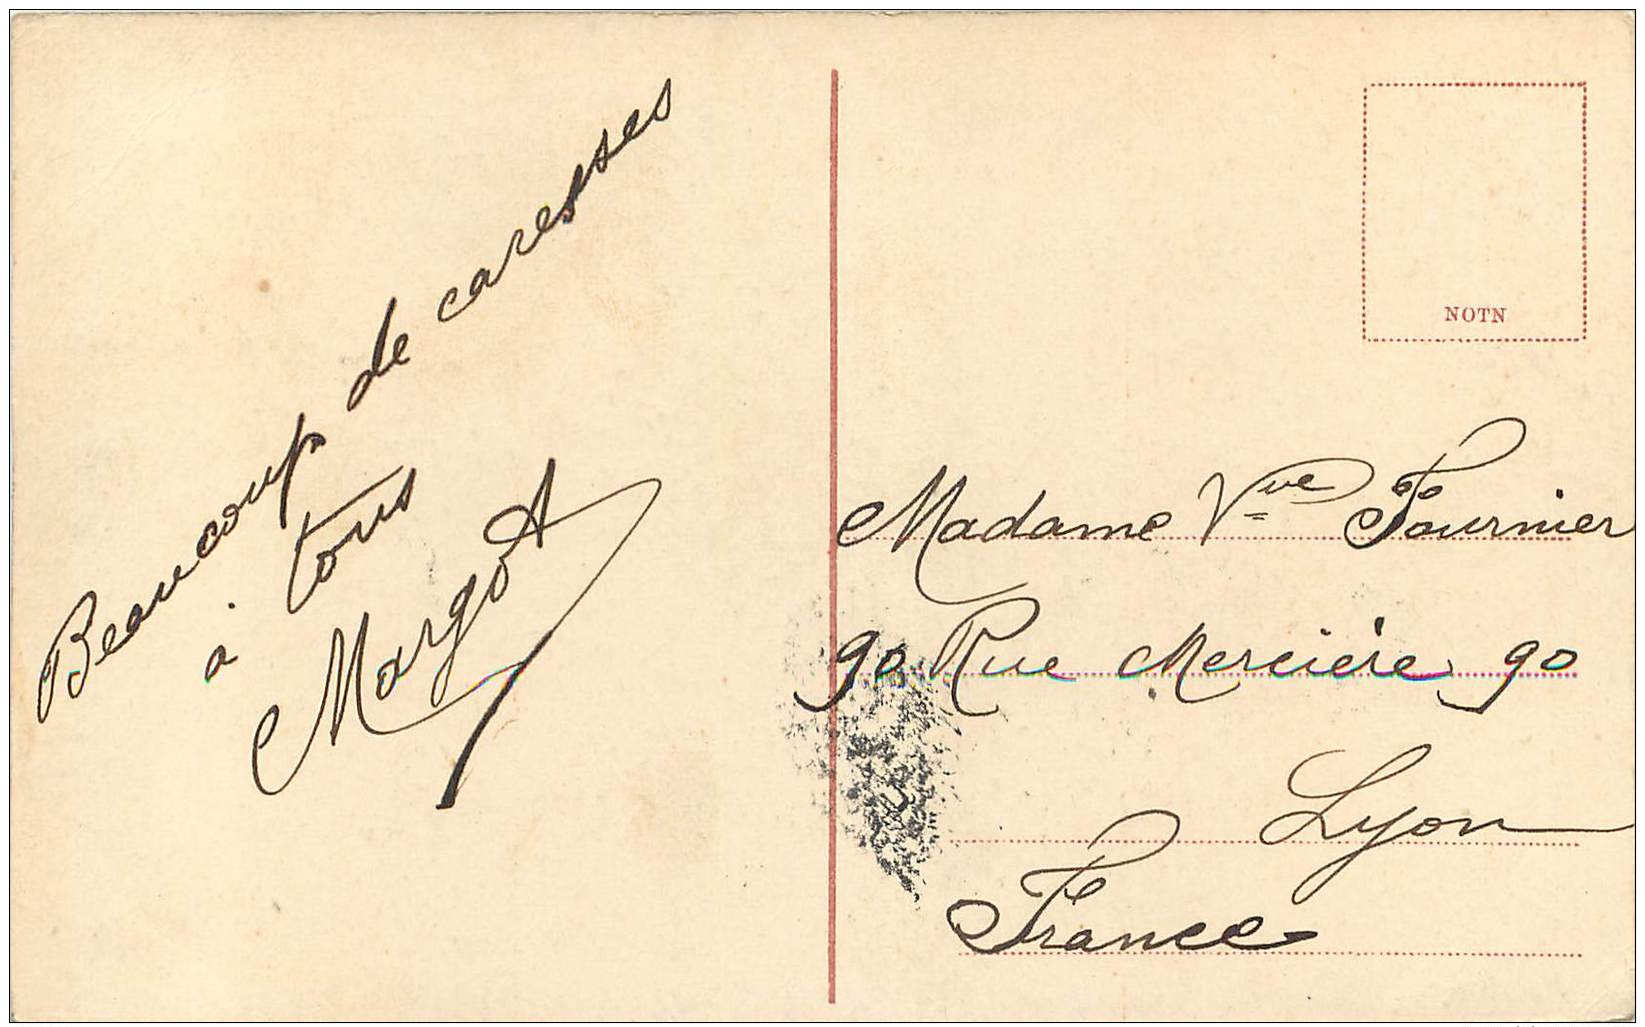 Beaucoup de caresses
à tous
Margot
NOTN
Madame Vve Fournier
90 Rue Mercière 90
Lyon
France